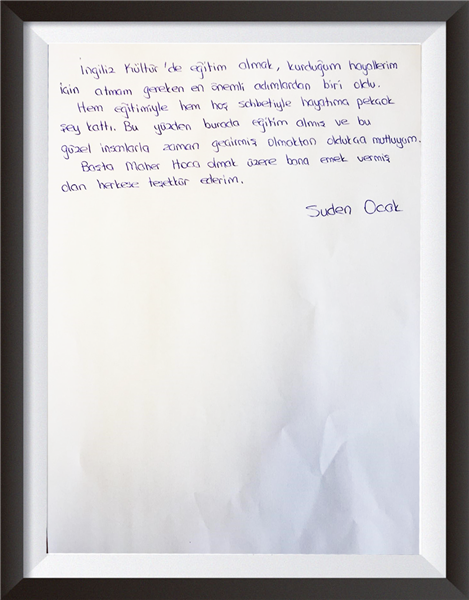 İngiliz Kültür'de eğitim almak, kurduğum hayallerim
için atmam gereken en önemli adımlardan biri oldu.
Hem eğitimiyle hem hoş sohbetiyle hayatıma pekçok
şey kattı. Bu yüzden burada eğitim almış ve bu
güzel insanlarla zaman geçirmiş olmaktan oldukça mutluyum.
Başta Maher Hoca olmak üzere bana emek vermiş
olan herkese teşekkür ederim.
Suden Ocak